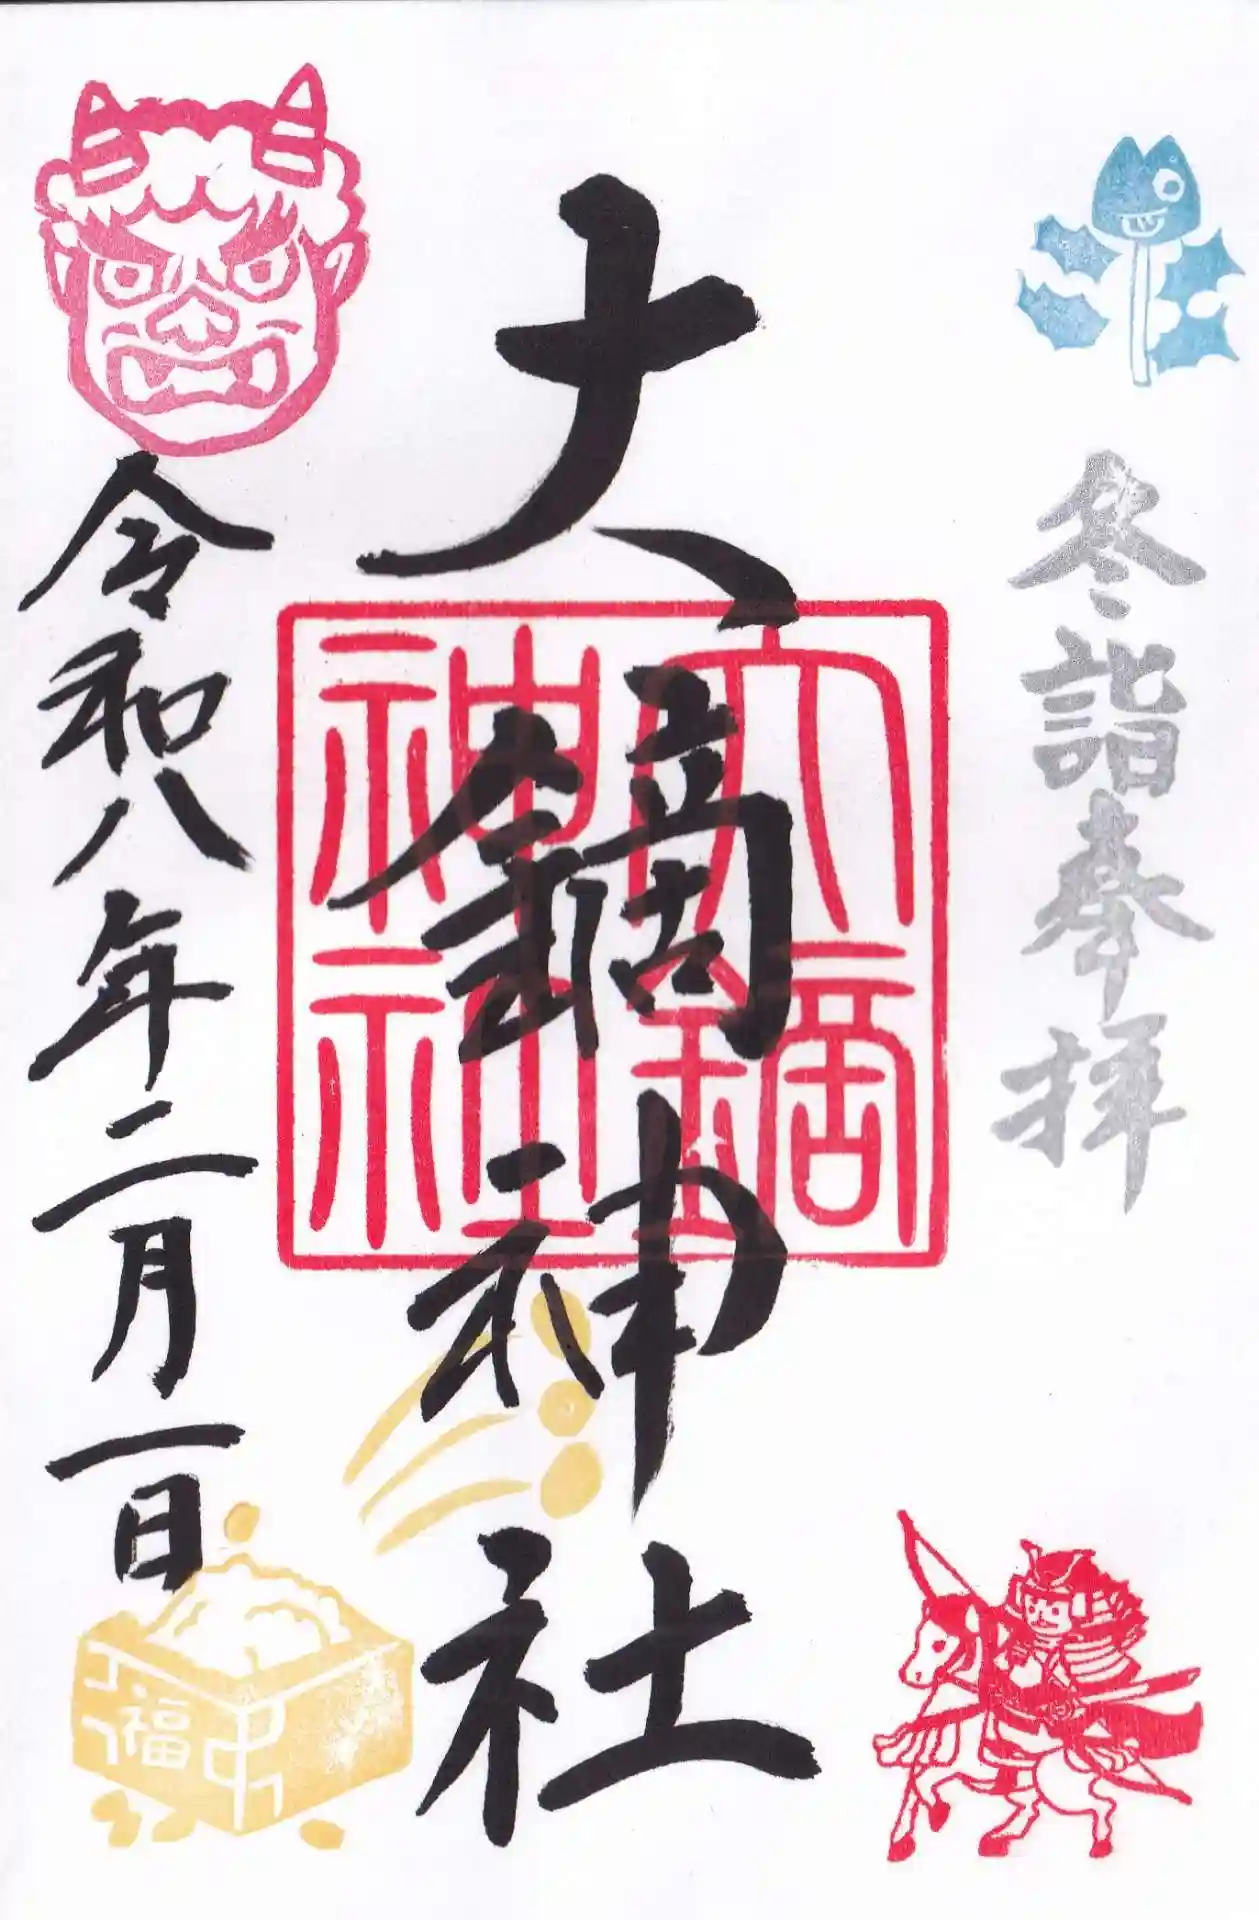 冬詣奉拝
大鏑神社
大鏑
神社
令和八年二月一日
福